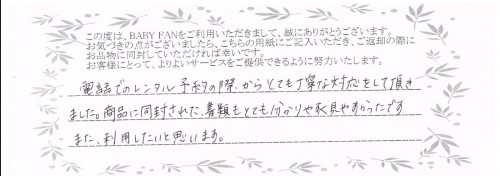 この度は、BABY FANをご利用いただきまして、誠にありがとうございます。
お気づきの点がございましたら、こちらの用紙にご記入いただき、ご返却の際に
お品物に同封していただければ幸いです。
お客様にとって、よりよいサービスをご提供できるように努力いたします。
電話でのレンタル予約の際、からとても丁寧な対応をして頂き
ました。商品に同封された、書類もとても分かりや
すかったです
また、利用したいと思います。